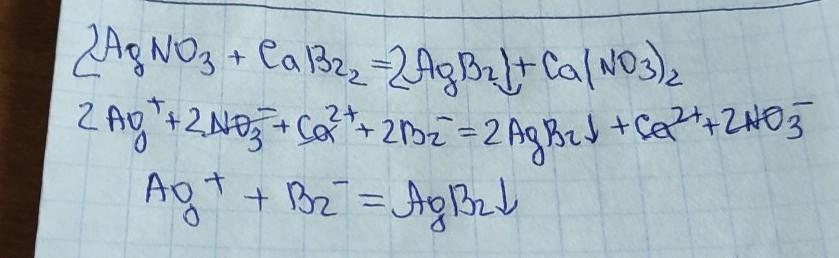 2AgNO₃ + CaBr₂ = 2AgBr↓ + Ca(NO₃)₂
2Ag⁺ + 2NO₃⁻ + Ca²⁺ + 2Br⁻ = 2AgBr↓ + Ca²⁺ + 2NO₃⁻
Ag⁺ + Br⁻ = AgBr↓